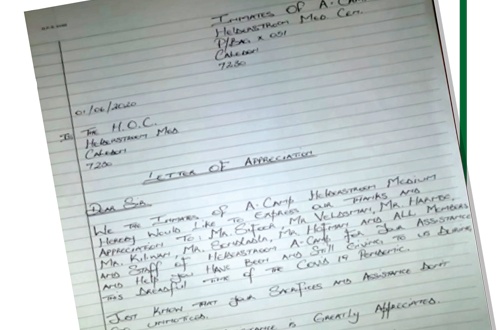 Inmates of A. Camp
Helderstroom Med Cen.
P/Bag x 051
Caledon
7230
01/06/2020
The H.O.C.
Helderstroom Med.
Caledon
7230
Letter of Appreciation
Dear Sir.
We the Inmates of A. Camp Helderstroom Medium
Hereby Would Like to Express our Thanks and
Appreciation to, Mr. Mr. Veldsman, Mr.
Mr. Kilman, Ms. Mr. Hofman and All Members
and Staff of Helderstroom A. Camp for your Assistance
and Help You Have Been and Still Giving to us During
this Dreadful time of the Covid 19 Pandemic.
Just Know that your Sacrifices and Assistance Don't
Go unnoticed.
is Greatly Appreciated.